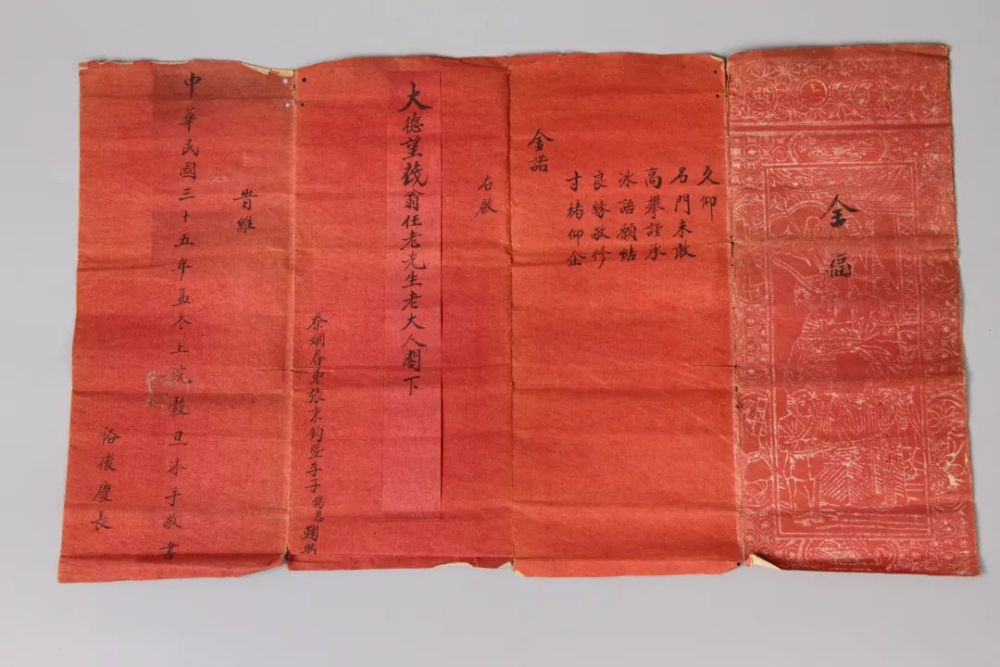 全福
久仰
名門未敢
高攀謹承
冰語願結
良緣敬修
寸楮仰企
金諾
右啟
大德望筏翁任老先生老大人閣下
忝姻眷弟張秉鈞暨季子錫恩鞠躬
時維
中華民國三十五年孟冬上浣穀旦沐手敬書
裕後慶長